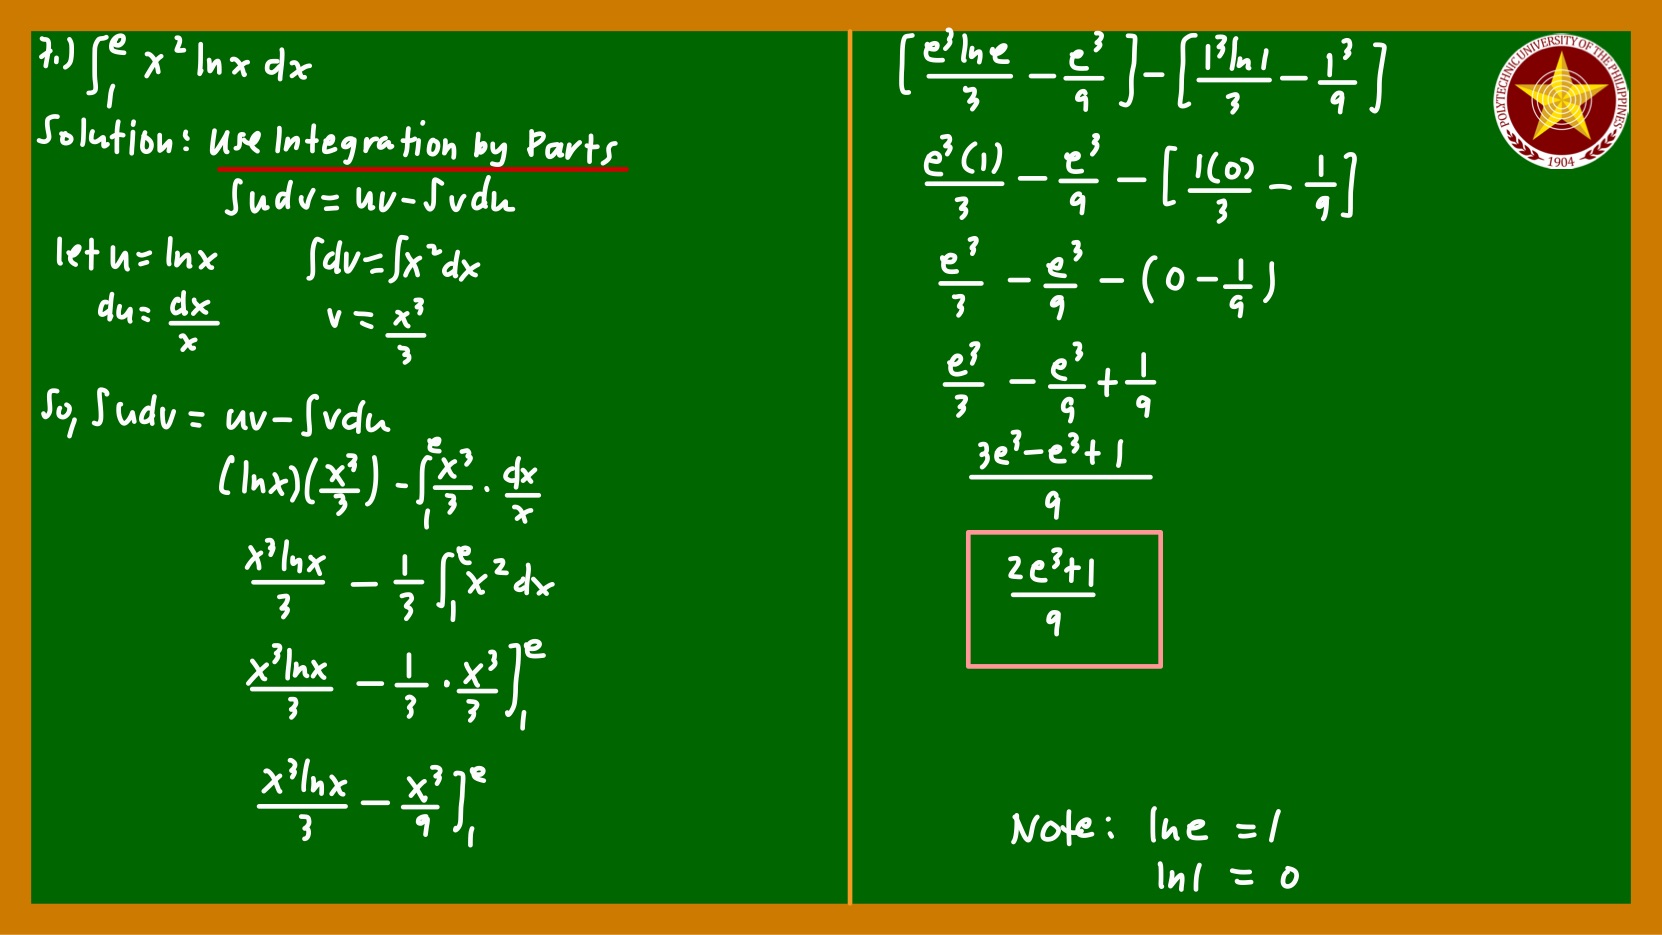 7.) ∫₁ᵉ x² ln x dx
Solution: Use Integration by Parts
∫udv = uv - ∫vdu
let u = ln x    ∫dv = ∫x² dx
du = dx/x    v = x³/3
So, ∫udv = uv - ∫vdu
(ln x)(x³/3) - ∫₁ᵉ x³/3 · dx/x
x³ln x/3 - 1/3 ∫₁ᵉ x² dx
x³ln x/3 - 1/3 · x³/3 ]₁ᵉ
x³ln x/3 - x³/9 ]₁ᵉ
[e³ln e/3 - e³/9] - [1³ln 1/3 - 1³/9]
e³(1)/3 - e³/9 - [1(0)/3 - 1/9]
e³/3 - e³/9 - (0 - 1/9)
e³/3 - e³/9 + 1/9
3e³ - e³ + 1/9
2e³ + 1/9
Note: ln e = 1
ln 1 = 0
POLYTECHNIC UNIVERSITY OF THE PHILIPPINES
1904